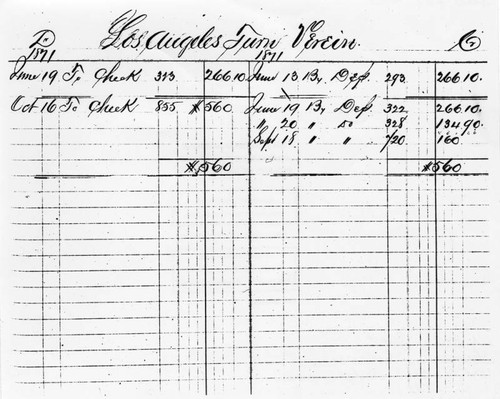 Dr Los Angeles Turn Verein. Cr
1871 1871
June 19 To Check 313 266 10 June 13 By Dep. 293 266 10.
Oct 16 To Check 855 $560 June 19 By Dep 322 266 10.
" 20 " Do 328 134 90.
Sept 18 " " 720 160
$560 $560